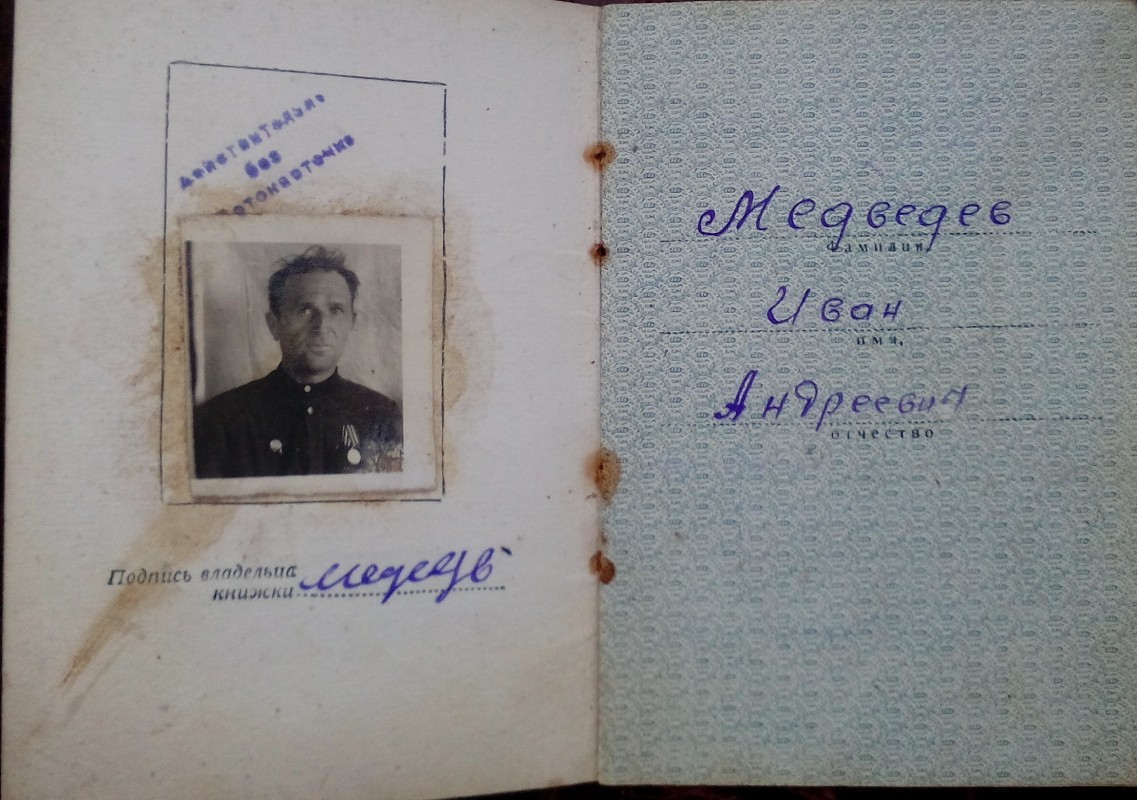 Действительно
без
фотокарточки
Подпись владельца
книжки Медедв
Медведев
Фамилия,
Иван
имя,
Андреевич
отчество